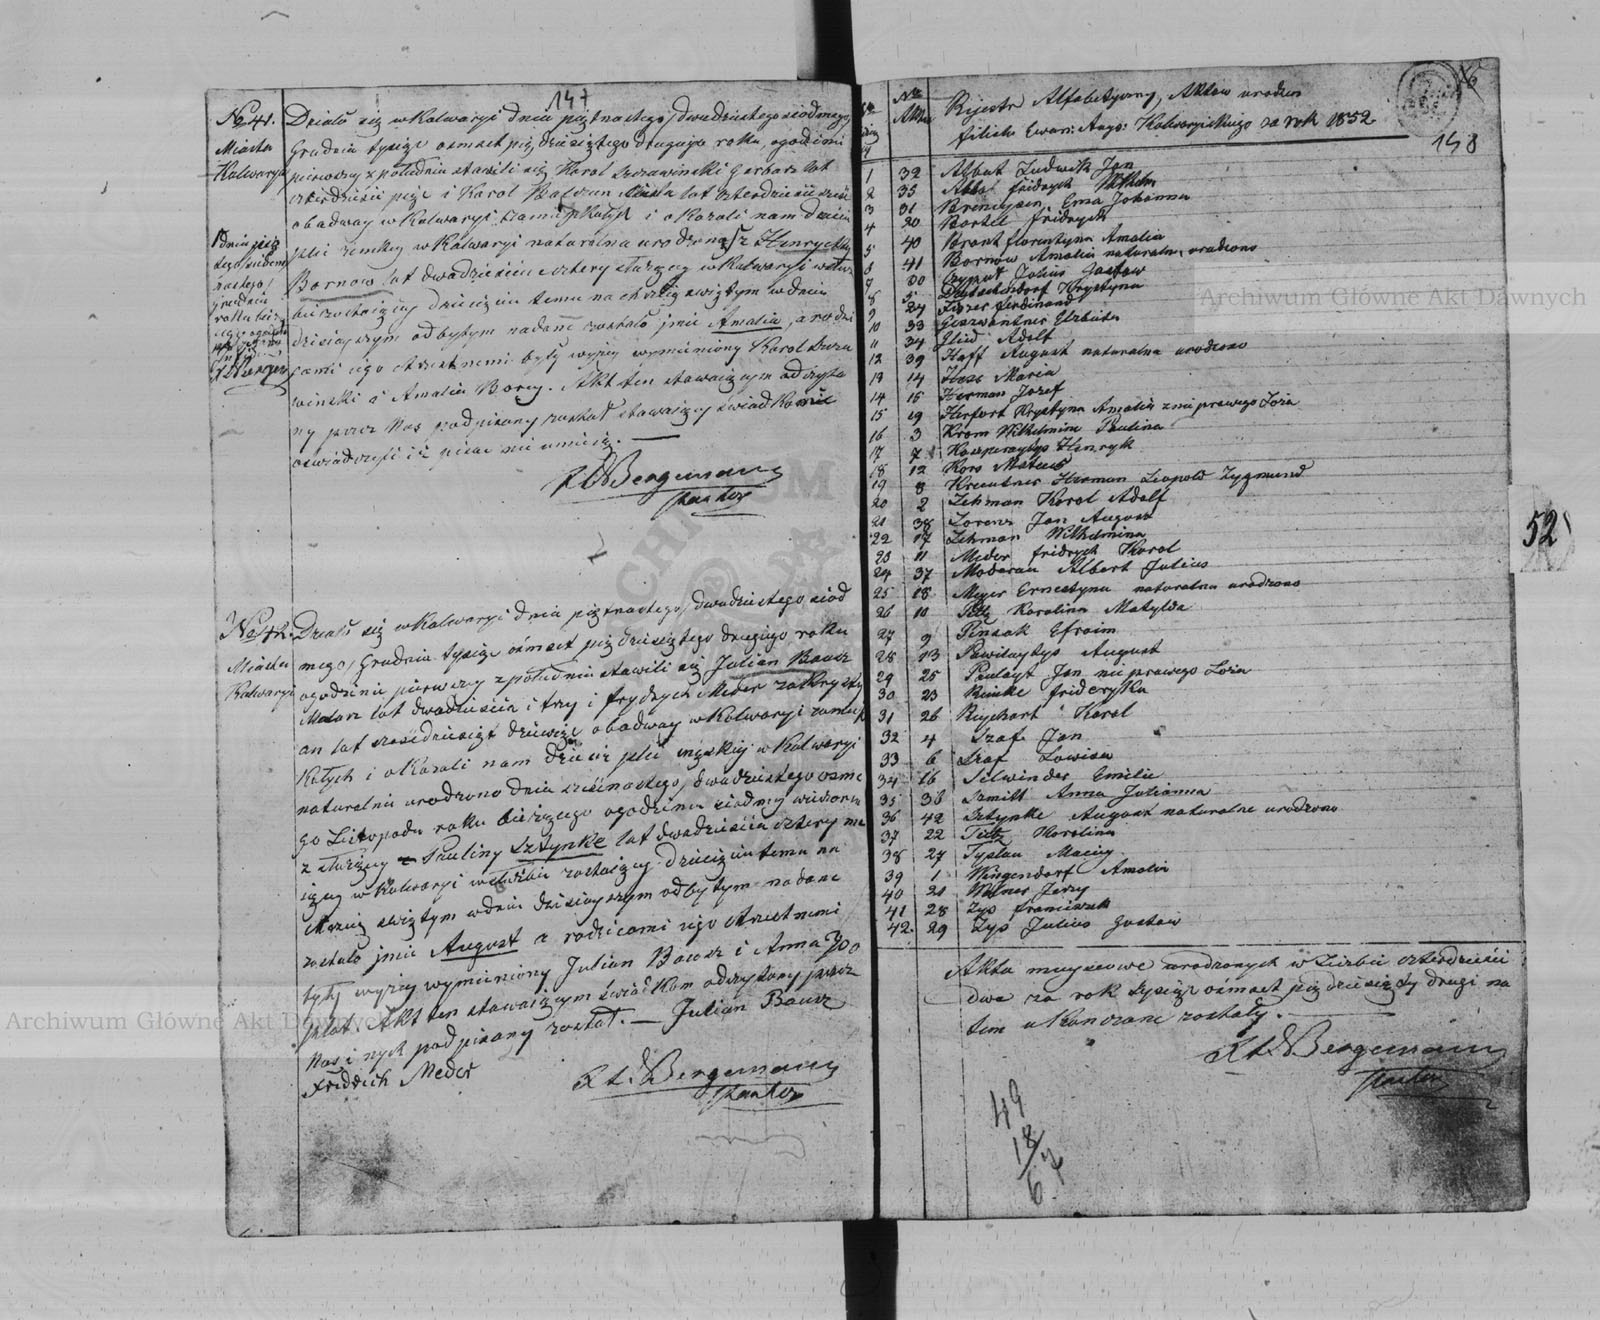 147
No 41.
Miasta
Kalwarya
Działo się w Kalwaryi dnia piętnastego /dwudziestego siódmego/
Grudnia tysiąc ośmset pięćdziesiątego drugiego roku, o godzinie
pierwszej z południa stawili się Karol Szczawinski Garbarz lat
czterdzieści pięć i Karol Balzun Cieśla lat czterdzieści sześć
obadway w Kalwaryi zamieszkałych i okazali nam dziecie
płci żeńskiej w Kalwaryi naturalna urodzona z Henryetty
Bornow lat dwadzieścia cztery służącej w Kalwaryi
dziecięciu temu na chrzcie świętym w dniu
dzisiejszym odbytym nadane zostało jmie Amalia, a rodzi
cami jego chrzestnemi byli wyżej wymieniony Karol Szcza
winski i Amalia Borcy. Akt ten stawającym odczyta
ny przez Nas podpisany został stawający świadkowie
oświadczyli iż pisać nie umieją.
Bergemann
Pastor
No 42.
Miasta
Kalwarya
Działo się w Kalwaryi dnia piętnastego /dwudziestego siód
mego/ Grudnia tysiąc ośmset pięćdziesiątego drugiego roku
o godzinie pierwszej z południa stawili się Julian Bausz
Malarz lat dwadzieścia i trzy i Frydrych Meder zakrysty
an lat sześćdziesiąt dziewięć obadway w Kalwaryi zamiesz
kałych i okazali nam dziecie płci męskiej w Kalwaryi
naturalnie urodzone dnia szesnastego /dwudziestego osme
go Listopada roku bieżącego o godzinie siódmej wieczorem
z służącej Pauliny Sztynke lat dwadzieścia cztery ma
jącej w Kalwaryi w służbie zostającej. dziecięciu temu na
chrzcie świętym w dniu dzisiejszym odbytym nadane
zostało jmie August a rodzicami jego chrzestnemi
byli wyżej wymieniony Julian Bausz i Anna
Akt ten stawającym świadkom odczytany przez
Nas i nych podpisany został. — Julian Bausz
Fridrich Meder
Bergemann
Pastor
148
No
Aktu
Rejestr Alfabetyczny, Aktów urodzen
filiału Ewan: Augs: Kalwaryiskiego za rok 1852
1 32 Albat Ludwik Jan
2 35 Abbat Fridrych Wilhelm
3 31 Brendysen Ema Johanna
4 20 Bartel Fridrych
5 40 Brant Florentyna Amalia
6 41 Bornow Amalia naturalnie urodzona
7 30 Julius Gustaw
8 5 Krystyna
9 24 Fiszer Ferdinand
10 33 Elzbieta
11 34 Glied Adolf
12 39 Haff August naturalna urodzono
13 14 Hass Maria
14 15 Herman Jozef
15 19 Herfort Krystyna Amalia z nie prawego Łoża
16 3 Krom Wilhelmina Paulina
17 7 Kasperaytys Henryk
18 12 Kors Mateus
19 8 Kreutner Herman Leopold Zygmund
20 2 Lehman Karol Adolf
21 38 Lorenz Jan August
22 17 Lehman Wilhelmina
23 11 Meder Fridrych Karol
24 37 Moderau Albert Julius
25 18 Meyer Ernestyna naturalna urodzono
26 10 Karolina Matylda
27 9 Pinsak Efroim
28 13 Pawilaytys August
29 25 Paulayt Jan nie prawego Łoża
30 23 Reinke Friderika
31 26 Reychart Karol
32 4 Szaf Jan
33 6 Szaf Lowisa
34 16 Silwinder Emilie
35 36 Szmitt Anna Julianna
36 42 Sztynke August naturalne urodzono
37 22 Titz Karolina
38 27 Tyslau Maciey
39 1 Wingendorf Amalia
40 21 Wilner Jerzy
41 28 Zys Franciszek
42. 29 Zys Julius Gustaw
Akta miejscowe urodzonych w Liczbie czterdzieści
dwa za rok tysiąc ośmset pięćdziesiąty drugi na
tem ukończone zostały.
Bergemann
Pastor
49
18
6
52
Archiwum Główne Akt Dawnych
Archiwum Główne Akt Dawnych